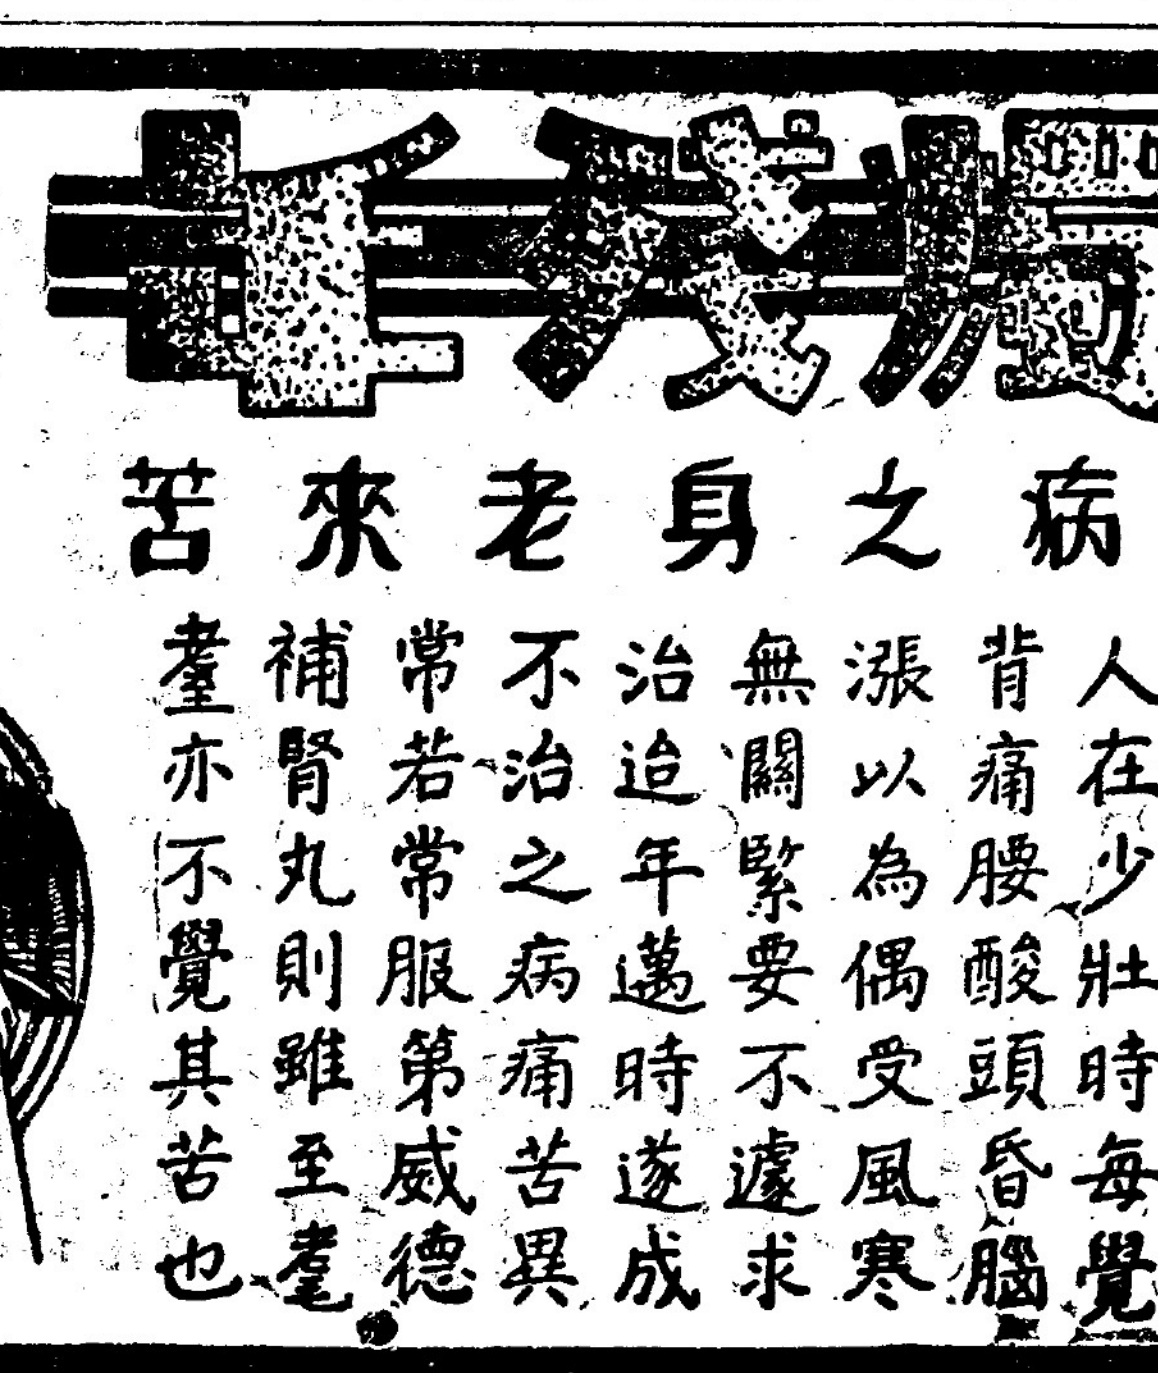 病之身老來苦
人在少壯時每覺
背痛腰酸頭昏腦
漲以為偶受風寒
無關緊要不遽求
治迨年邁時遂成
不治之病痛苦異
常若常服第威德
補腎丸則雖至耄
耋亦不覺其苦也